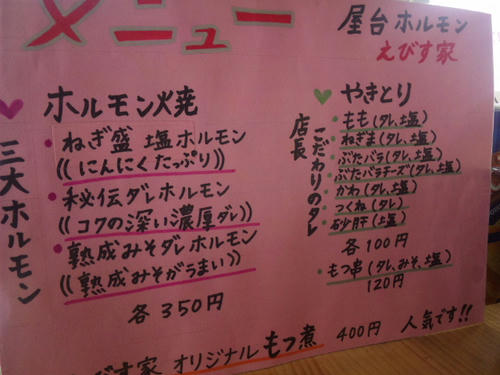 メニュー
屋台ホルモン
えびす家
三大ホルモン
ホルモン焼
ねぎ盛 塩ホルモン
((にんにくたっぷり))
秘伝ダレホルモン
((コクの深い濃厚ダレ))
熟成みそダレホルモン
((熟成みそがうまい))
各350円
やきとり
店長
こだわりのタレ
もも(タレ、塩)
ねぎま(タレ、塩)
ぶたバラ(タレ、塩)
ぶたバラチーズ(タレ、塩)
かわ(タレ、塩)
つくね(タレ)
砂肝(塩)
各100円
もつ串(タレ、みそ、塩)
120円
びす家 オリジナル もつ煮 400円 人気です!!